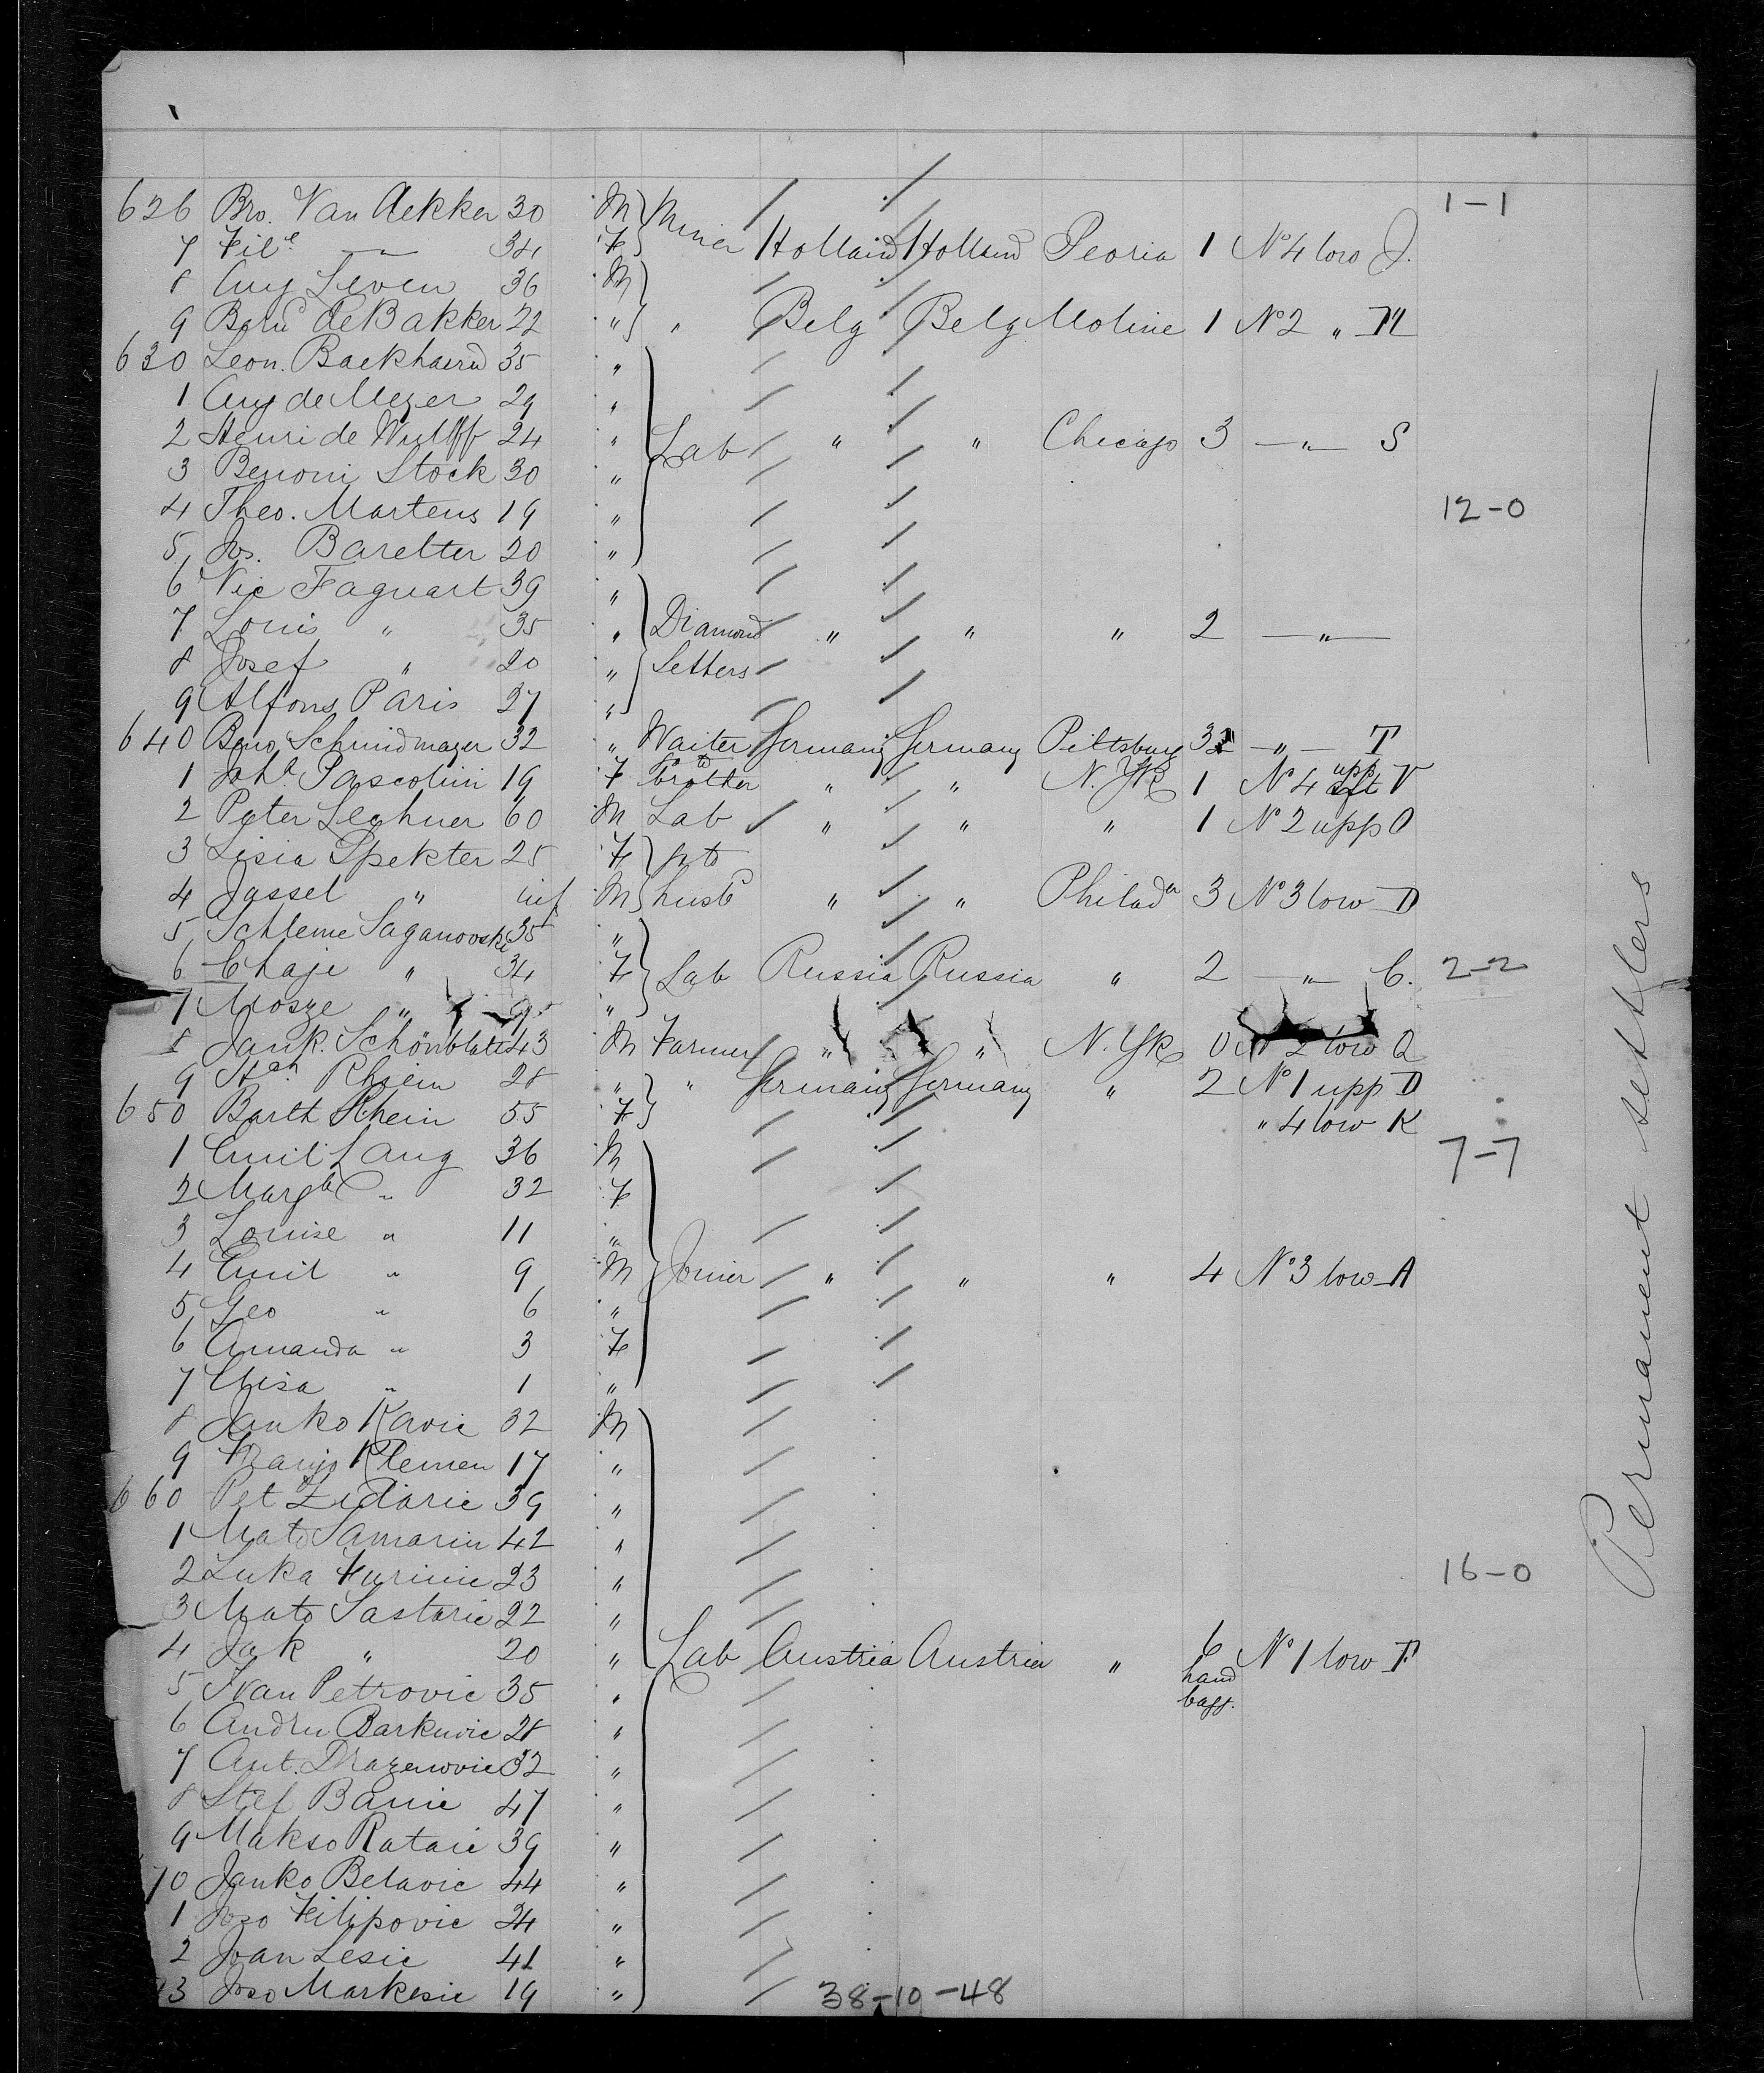 1-1
626 Bro. Van Aekker 30 M Miner
7 Fil.e —"— 34 F Holland Holland Peoria 1 No 4 low J.
8 Aug Leven 36 M
9 de Bakker 22 " " Belg Belg Moline 1 No 2 " M
630 Leon. Baekhaerd 35 "
1 Aug de Meyer 29 "
2 Henri de Wulff 24 " Lab " " Chicago 3 —"— S
3 Benoni Stock 30 "
4 Theo. Martens 19 " 12-0
5 Jos. Baretter 20 "
6 Vic Faquart 39 "
7 Louis " 35 " Diamond " " " 2 —"—
8 Josef " 20 " Setters
9 Alfons Paris 27 "
640 Schmidmayer 32 " Waiter Germany Germany Pittsburg 3 —"— T
1 Pascolini 19 F to brother " " N. Yk 1 No 4 upp V
2 Peter Lechner 60 M Lab " " " 1 No 2 upp O
3 Lisia Spekter 25 F to
4 Jassel " inf M husbd " " Philada 3 No 3 low D
5 Schleme Saganovski 35 "
6 Chaje " 34 F Lab Russia Russia " 2 —"— C. 2-2
7 Mosze " 9 "
8 Jank. Schönblatt 43 M Farmer " " N. Yk 0 No 2 low Q
9 Rhein 28 " " Germany Germany " 2 No 1 upp D
650 Barth Rhein 55 F " 4 low K
1 Emil Lang 36 M 7-7
2 Margt " 32 F
3 Louise " 11 "
4 Emil " 9 M Joiner " " " 4 No 3 low A
5 Geo " 6 "
6 Amanda " 3 F
7 Elisa " 1 "
8 Janko Kavic 32 M
9 Franjo Klemen 17 "
660 Pet Zidaric 39 "
1 Mato Samarin 42 "
2 Luka Furinic 23 " 16-0
3 Mato Sastaric 22 "
4 Jak " 20 " Lab Austria Austria " 6 hand bagg. No 1 low F
5 Ivan Petrovic 35 "
6 Andru Barkuvic 28 "
7 Ant. Drazenovic 32 "
8 Stef Banic 47 "
9 Makso Rataic 39 "
70 Janko Belavic 44 "
1 Joso Filipovic 24 "
2 Ivan Lesic 41 "
73 Joso Markesic 19 "
38-10-48
Permanent settlers